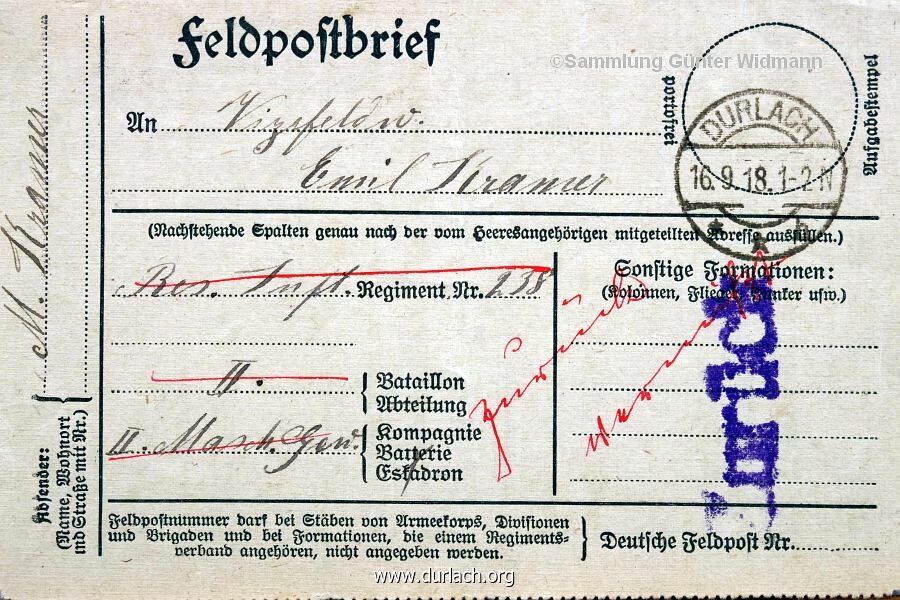 Feldpostbrief
©Sammlung Günter Widmann
portofrei
Aufgabestempel
DURLACH
16.9.18.1-2N
* k b
An Vizefeldw.
Emil Kramer
(Nachstehende Spalten genau nach der vom Heeresangehörigen mitgeteilten Adresse ausfüllen.)
Res. Inft. Regiment Nr. 238
II. Bataillon
Abteilung
II. Masch. Gew. Kompagnie
Batterie
Eskadron
Sonstige Formationen:
(Kolonnen, Flieger, Funker usw.)
zurück
Zurück
Feldpostnummer darf bei Stäben von Armeekorps, Divisionen
und Brigaden und bei Formationen, die einem Regiments-
verband angehören, nicht angegeben werden.
Deutsche Feldpost Nr.
M. Kramer
Absender:
(Name, Wohnort
und Straße mit Nr.)
www.durlach.org